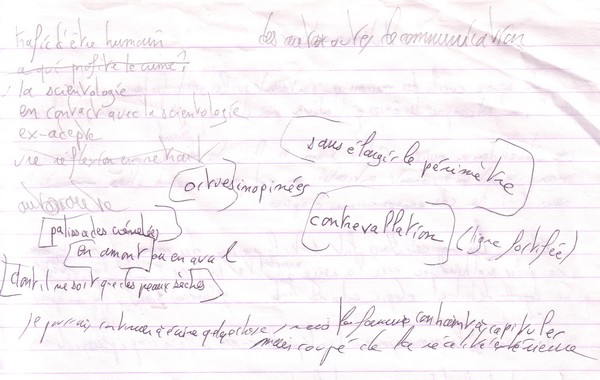 trafic d'être humain
à qui profite le crime?
la scientologie
en contact avec la scientologie
ex-adepte
une réflexion en retrait
autoroute
les autoroutes de communication
sans élargir le périmètre
[octves] inopinées
[palissades crénelées]
[contrevallation] (ligne fortifiée)
[en amont] ou en aval
[dont il ne soit que des peaux sèches]
je pourrais continuer à écrire quelque chose, mais la famine contraint à capituler
mais coupé de la réalité extérieure